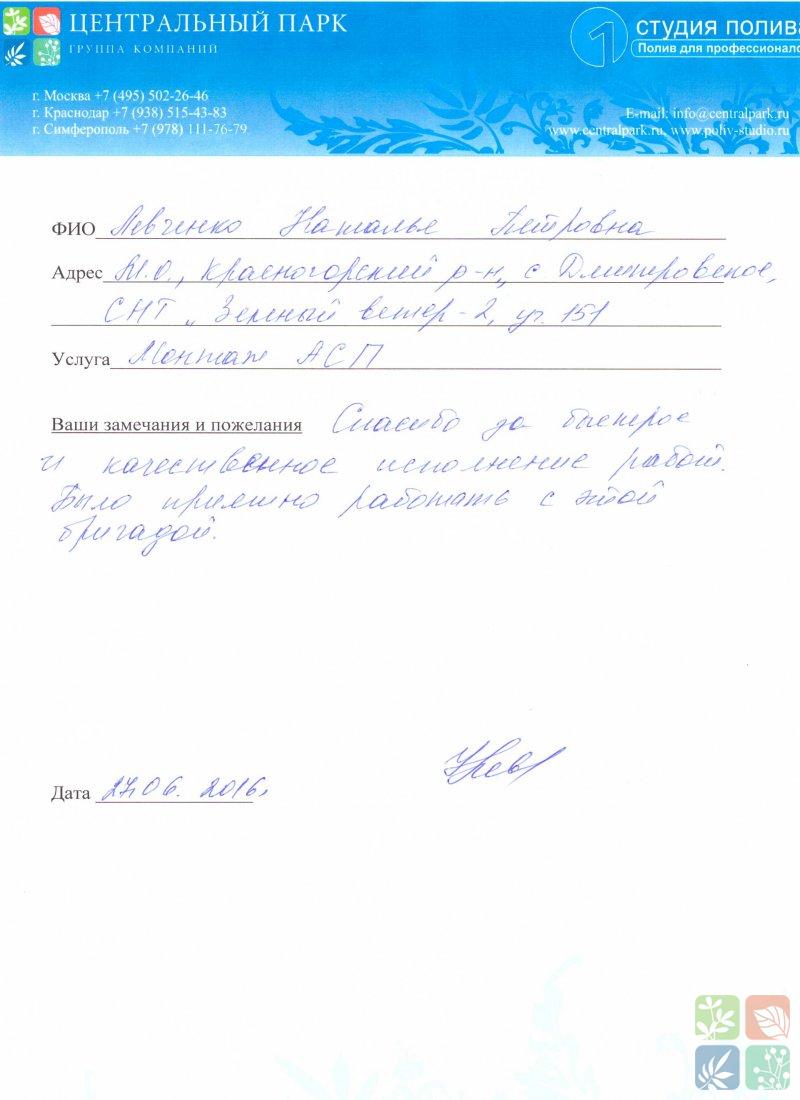 ЦЕНТРАЛЬНЫЙ ПАРК
ГРУППА КОМПАНИЙ
1 студия полива
Полив для профессионало
г. Москва +7 (495) 502-26-46
г. Краснодар +7 (938) 515-43-83
г. Симферополь +7 (978) 111-76-79
E-mail: info@centralpark.ru
www.centralpark.ru, www.poliv-studio.ru
ФИО Левченко Наталья Петровна
Адрес М.О., Красногорский р-н, с Дмитровское,
СНТ „Зеленый ветер-2, уч. 151
Услуга Монтаж АСП
Ваши замечания и пожелания Спасибо за быстрое
и качественное исполнение работ.
Было приятно работать с этой
бригадой.
Дата 27.06. 2016.